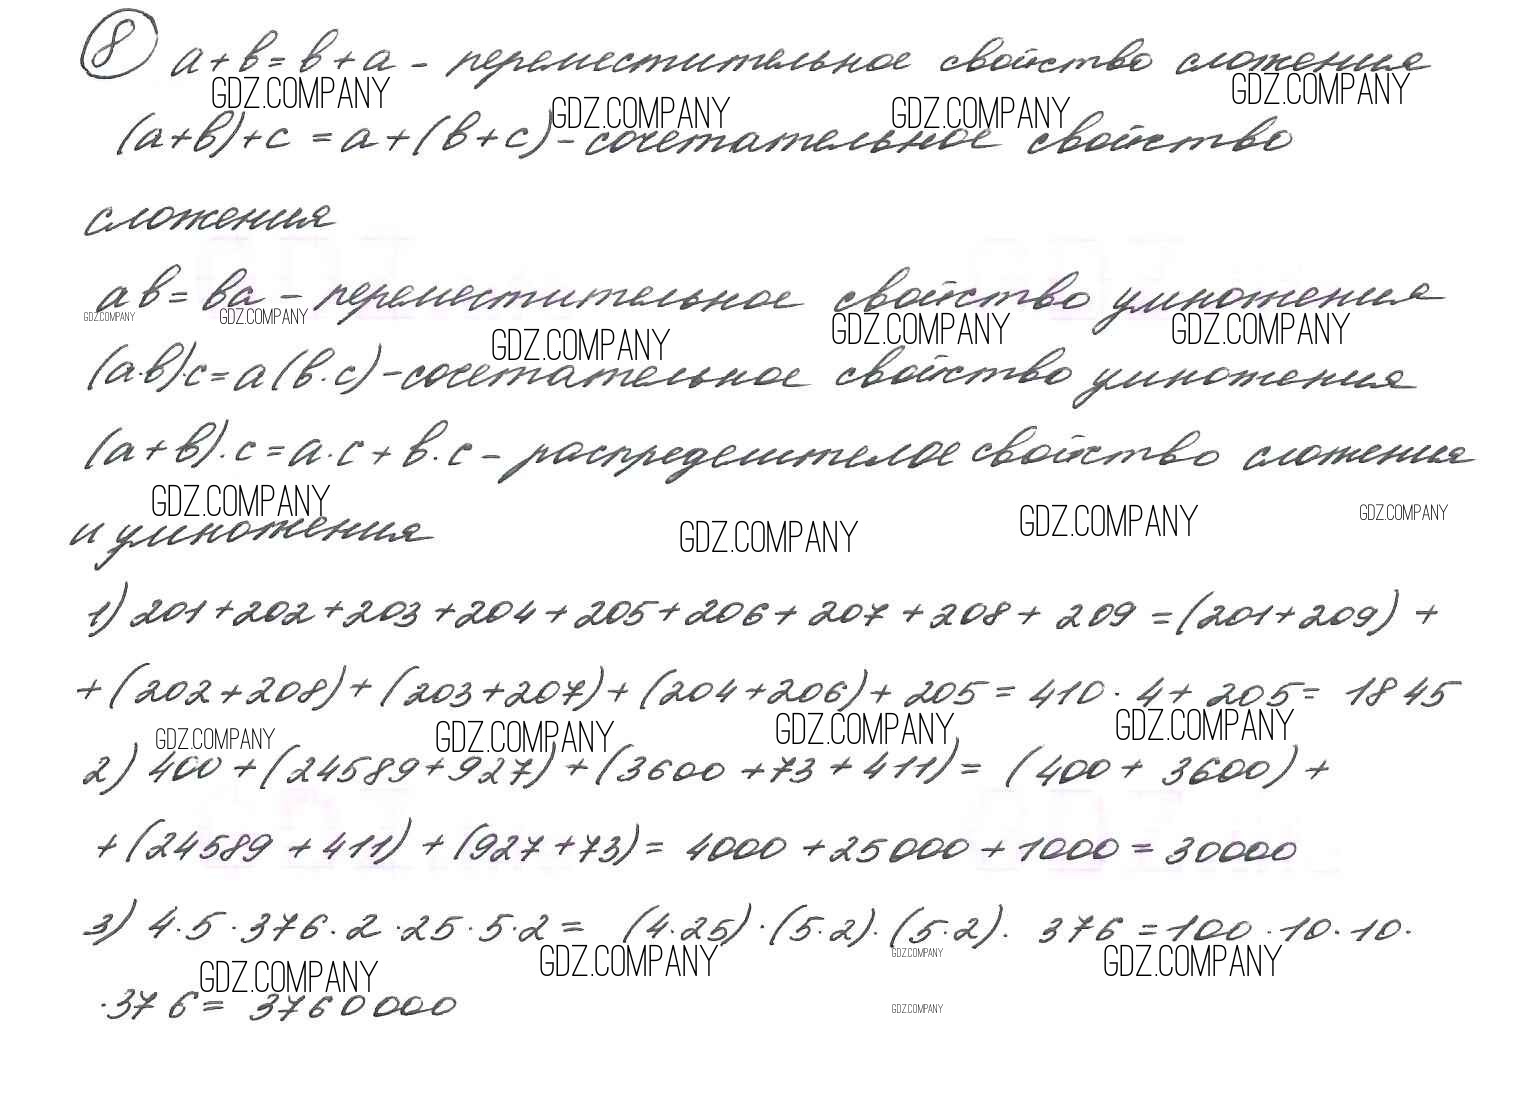 8 a+в=в+a - переместительное свойство сложения
GDZ.COMPANY GDZ.COMPANY GDZ.COMPANY GDZ.COMPANY
(a+в)+c = a+(в+c) - сочетательное свойство
сложения
aв=вa - переместительное свойство умножения
GDZ.COMPANY GDZ.COMPANY GDZ.COMPANY GDZ.COMPANY GDZ.COMPANY
(a·в)·c=a(в·c) - сочетательное свойство умножения
(a+в)·c=a·c+в·c - распределителое свойство сложения
GDZ.COMPANY GDZ.COMPANY GDZ.COMPANY GDZ.COMPANY
и умножения
1) 201+202+203+204+205+206+207+208+209=(201+209)+
+(202+208)+(203+207)+(204+206)+205=410·4+205=1845
GDZ.COMPANY GDZ.COMPANY GDZ.COMPANY GDZ.COMPANY
2) 400+(24589+927)+(3600+73+411)=(400+3600)+
+(24589+411)+(927+73)=4000+25000+1000=30000
3) 4·5·376·2·25·5·2=(4·25)·(5·2)·(5·2)·376=100·10·10·
GDZ.COMPANY GDZ.COMPANY GDZ.COMPANY GDZ.COMPANY
·376=3760000
GDZ.COMPANY